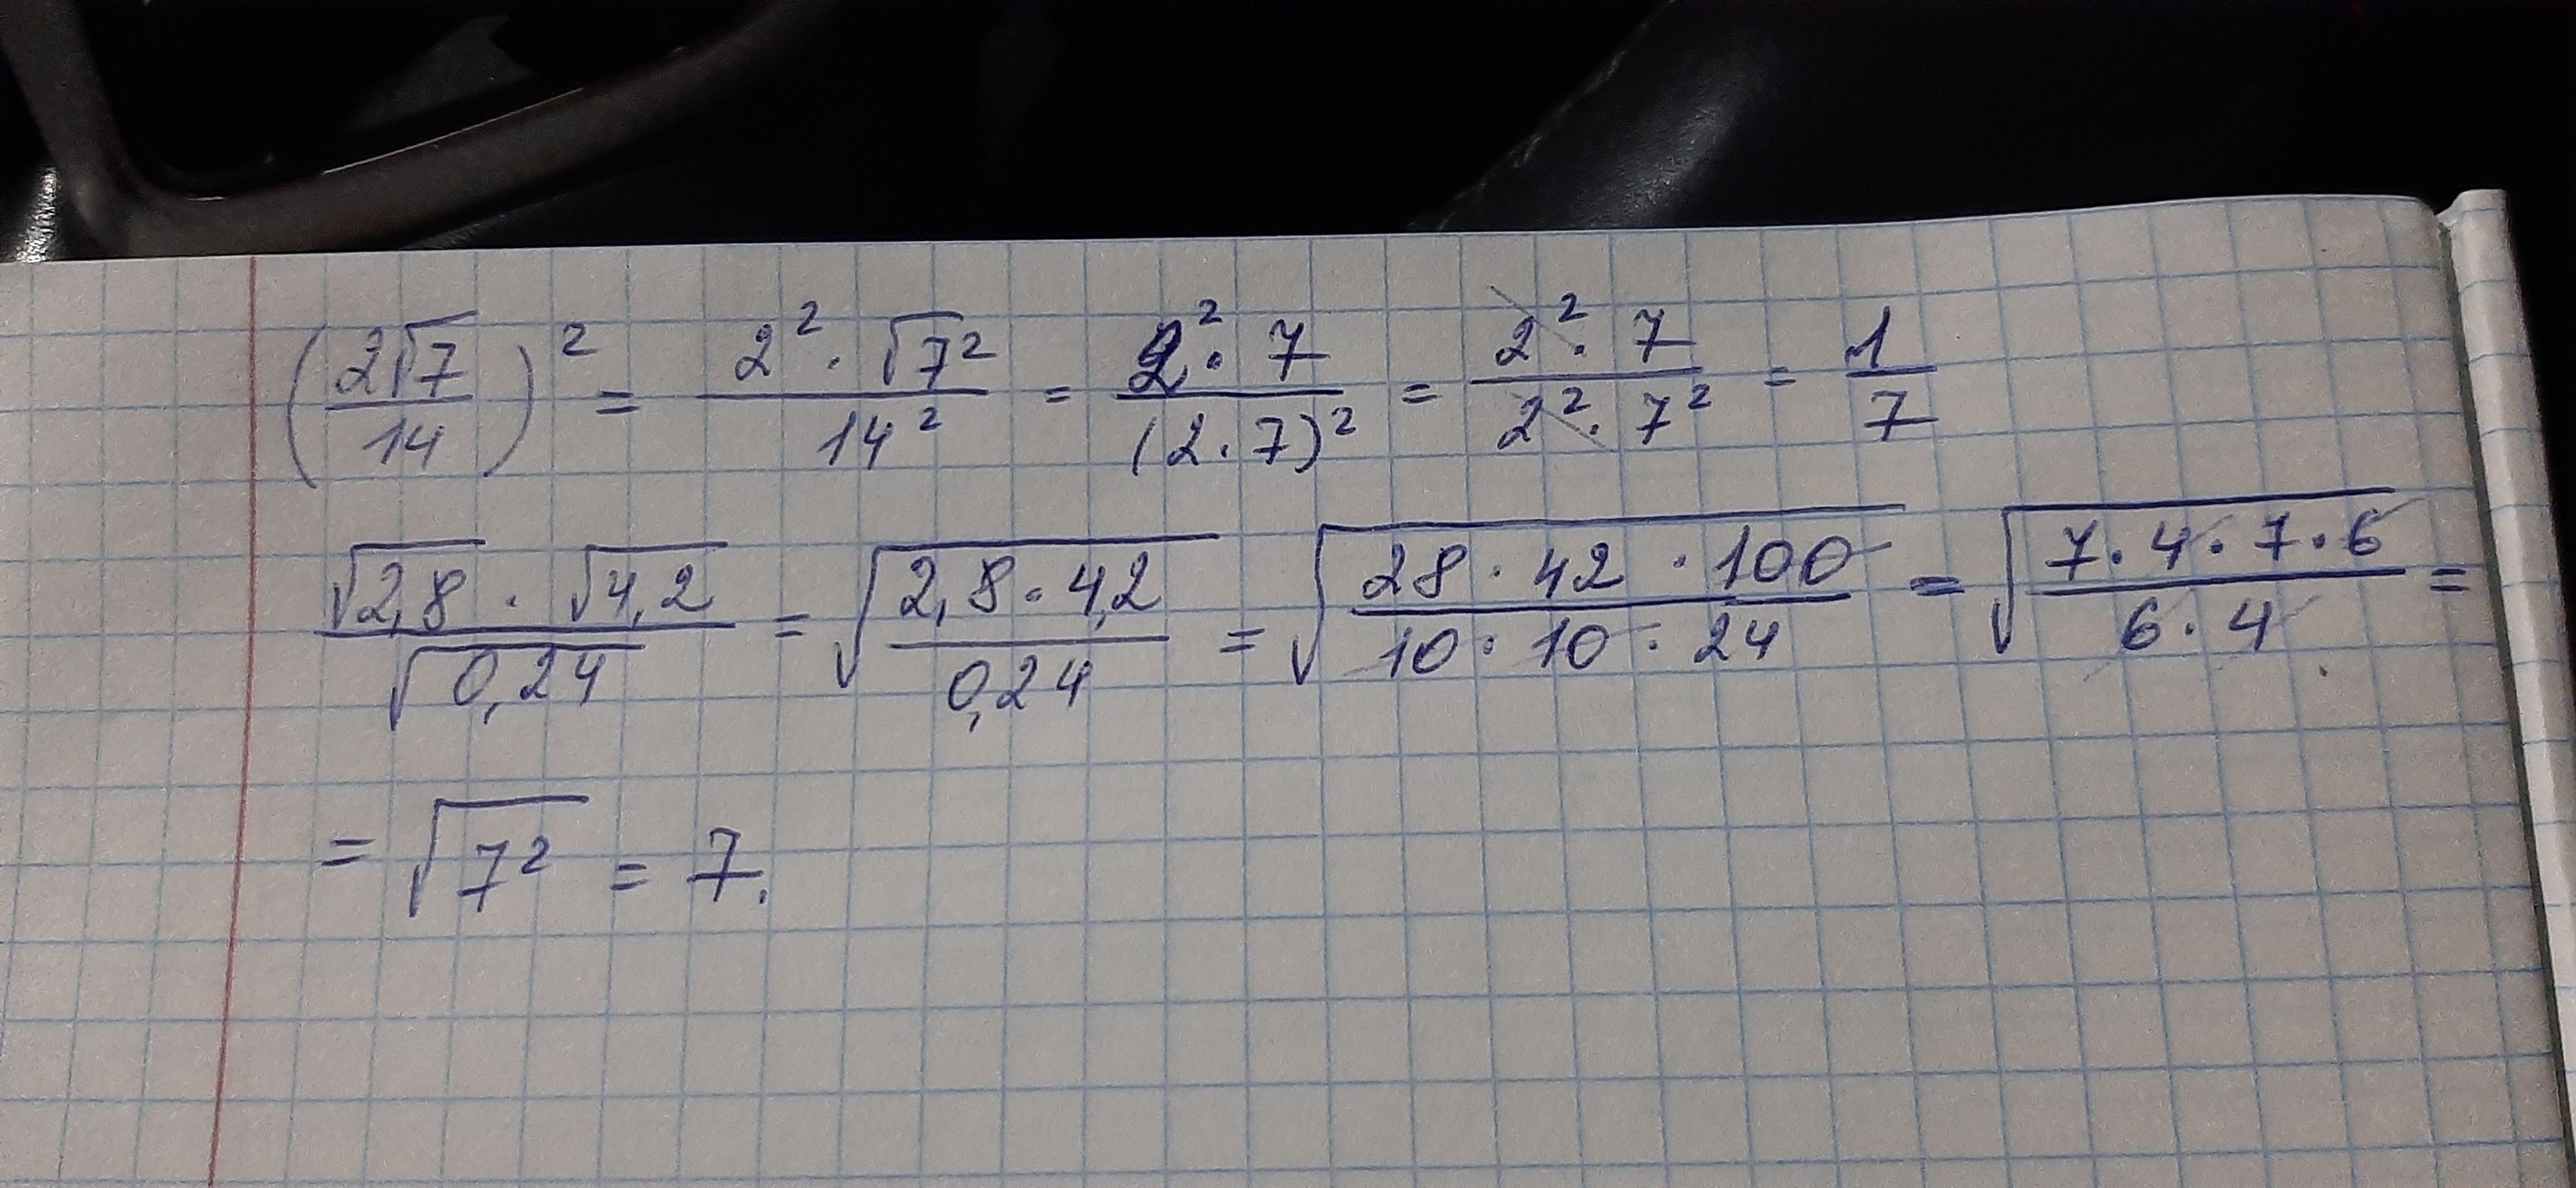 (2√7/14)² = 2²·√7²/14² = 2²·7/(2·7)² = 2²·7/2²·7² = 1/7
√2,8·√4,2/√0,24 = √(2,8·4,2/0,24) = √(28·42·100/10·10·24) = √(7·4·7·6/6·4) =
= √7² = 7.